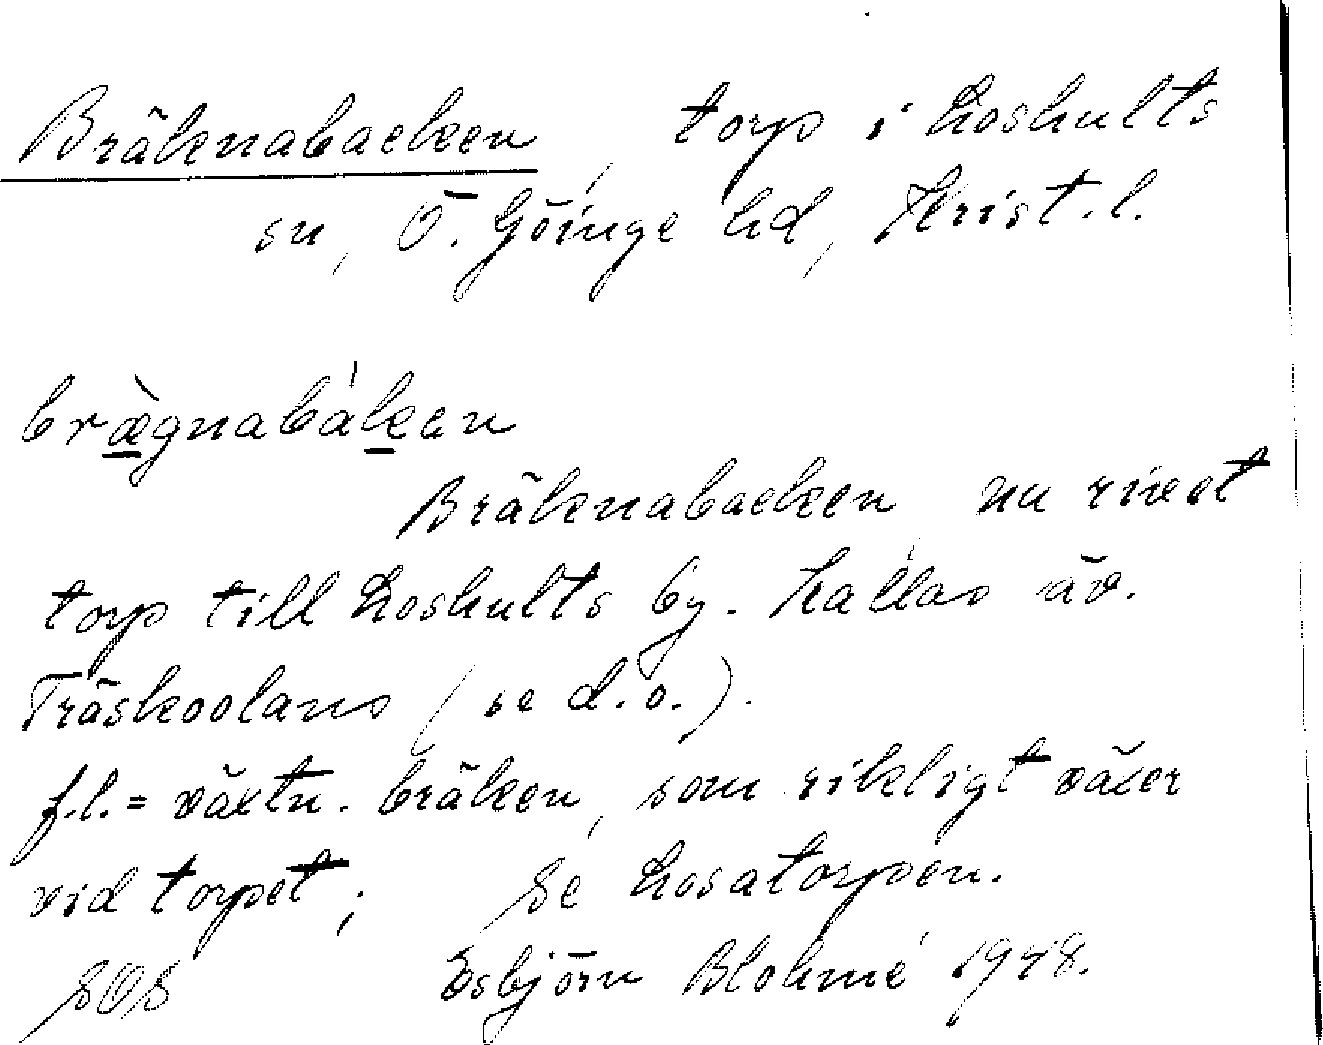 Bräknabacken, torp i Loshults
sn, Ö. Göinge hd, Krist. l.
bræ̀gnabákan
Bräknabacken, nu rivet
torp till Loshults by. Kallas äv.
Träskoolans (se d.o.).
f.l. = växtn. bräken, som rikligt växer
vid torpet; Se Losatorpen.
SOS Esbjörn Blohmé 1948.